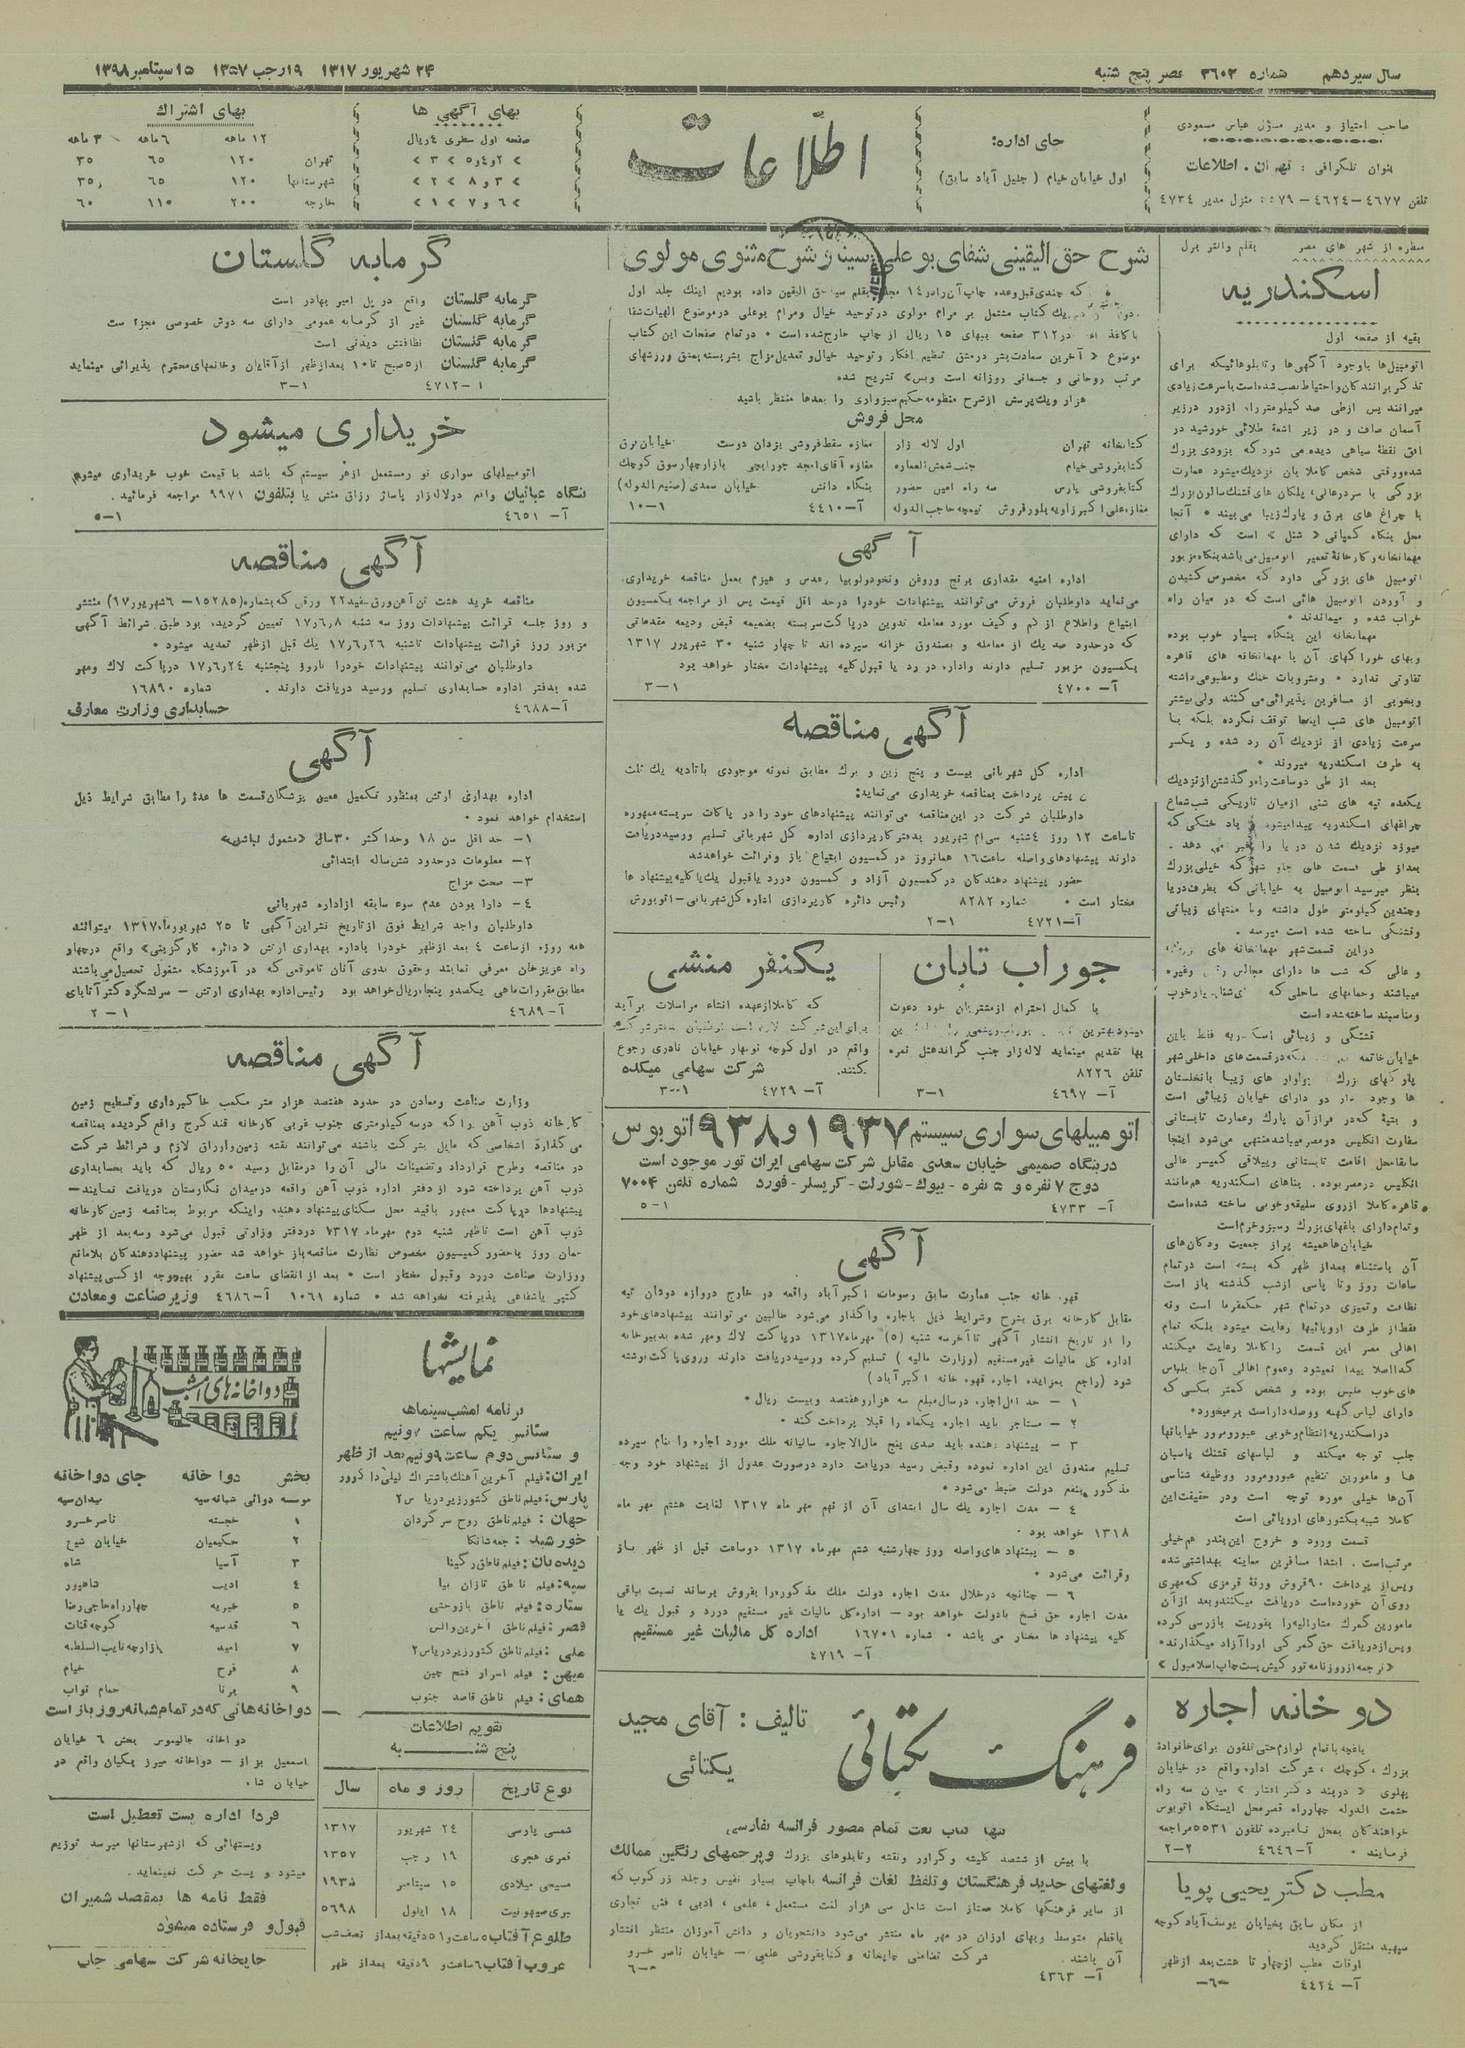 سال سیزدهم شماره ۳۶۰۲ عصر پنج شنبه
۲۴ شهریور ۱۳۱۷ ۱۹ رجب ۱۳۵۷ ۱۵ سپتامبر ۱۳۹۸
صاحب امتیاز و مدیر مسؤل عباس مسعودی
عنوان تلگرافی : تهران . اطلاعات
تلفن ۴۶۷۷ – ۴۶۲۴ – منزل مدیر ۴۷۳۴
جای اداره:
اول خیابان خیام ( جلیل آباد سابق)
اطلاعات
بهای آگهی ها
صفحه اول سطری ۴ ریال
بهای اشتراك
۱۲ ماهه ۶ ماهه ۳ ماهه
تهران ۱۲۰ ۶۵ ۳۵
شهرستانها ۱۲۰ ۶۵ ۳۵
خارجه ۲۰۰ ۱۱۰ ۶۰
منظره از شهر های مصر
اسکندریه
بقیه از صفحه اول
اتومبیل‌ها باوجود آگهی‌ها و تابلوهائیکه برای
تذکر برانندکان و احتیاط نصب شده است با سرعت زیادی
میرانند پس ازطی صد کیلومتر راه ازدور درزیر
آسمان صاف و در زیر اشعهٔ طلائی خورشید در
افق نقطهٔ سیاهی دیده می شود که بزودی بزرك
شده ووقتی شخص کاملا بآن نزدیك میشود عمارت
بزرگی با سردرعالی، پلکان های قشنك سالون بزرك
با چراغ های برق و پارك زیبا می بیند • آنجا
محل بنگاه کمپانی « شل » است که دارای
مهمانخانه و کارخانهٔ تعمیر اتومبیل می باشد بنگاه مزبور
اتومبیل های بزرگی دارد که مخصوص کشیدن
و آوردن اتومبیل هائی است که در میان راه
خراب شده و میمانند •
مهمانخانه این بنگاه بسیار خوب بوده
وبهای خوراکهای آن با مهمانخانه های قاهره
تفاوتی ندارد • ومشروبات خنك ومطبوعی داشته
وبخوبی از مسافرین پذیرائی می کنند ولی بیشتر
اتومبیل های شب اینجا توقف نکرده بلکه با
سرعت زیادی از نزدیك آن رد شده و یکسر
به طرف اسکندریه میروند •
بعد از طی دوساعت راه و گذشتن از نزدیك
یکعده تپه های شنی ازمیان تاریکی شب شعاع
چراغهای اسکندریه پیدا میشود و باد خنکی که
میوزد نزدیك شدن دریا را خبر می دهد .
بعداز طی قسمت های جلو شهر که خیلی بزرك
بنظر میرسید اتومبیل به خیابانی که بطرف دریا
وچندین کیلومتر طول داشته وبا منتهای زیبائی
وقشنگی ساخته شده است میرسه .
دراین قسمت شهر مهمانخانه های
و عالی که شب ها دارای مجالس رقص وغیره
میباشند وحمامهای ساحلی که
ومناسبند ساخته شده است
قشنگی و زیبائی اسکندریه فقط باین
خیابان خاتمه درقسمت های داخلی شهر
پارکهای بزرك بولوار های زیبا بانخلستان
ها وجود دارد دو دارای خیابان زیبائی است
سفارت انگلیس درمصر میباشد منتهی می شود اینجا
سابقا محل اقامت تابستانی وییلاقی کمیسر عالی
انگلیس درمصر بوده . بناهای اسکندریه هم مانند
قاهره کاملا ازروی سلیقه و خوبی ساخته شده است
وتمام دارای باغهای بزرك و سبز و خرم است
خیابان ها همیشه پراز جمعیت ودکان‌های
آن باستثناء بعداز ظهر که بسته است درتمام
ساعات روز وتا پاسی ازشب گذشته باز است
نظافت وتمیزی درتمام شهر حکمفرما است ونه
فقط از طرف اروپائیها رعایت میشود بلکه تمام
اهالی مصر این قسمت را کاملا رعایت میکنند
گدا اصلا پیدا نمیشود وعموم اهالی آن‌جا بلباس
های خوب ملبس بوده و شخص کمتر بکسی که
دارای لباس کهنه و وصله دار است بر میخورد•
دراسکندریه انتظام وخوبی عبورومرور خیابانها
جلب توجه میکند و لباسهای قشنك پاسبان
ها و مامورین تنظیم عبورومرور ووظیفه شناسی
آن‌ها خیلی مورد توجه است ودر حقیقت این
کاملا شبیه بکشورهای اروپائی است
قسمت ورود و خروج این بندر هم خیلی
مرتب است . ابتدا مسافرین معاینه بهداشتی شده
وپس از پرداخت ۹۰ قروش ورقهٔ قرمزی که مهری
روی آن خورده است دریافت میکنند وبعد ازآن
مامورین گمرك متارلیه را بفوریت بازرسی کرده
وپس از دریافت حق گمرکی اورا آزاد میگذارند•
«ترجمه از روزنامه تورکیش پست چاپ اسلامبول »
دو خانه اجاره
باغچه باتمام لوازم حتی تلفون برای خانوادهٔ
خواهندگان بمحل نامبرده تلفون ۵۵۳۱ مراجعه
فرمایند • آ–۴۶۴۶ ۲–۲
مطب دکتر یحیی پویا
از مکان سابق بخیابان یوسف آباد کوچه
سپهبد منتقل گردید
اوقات مطب ازچهار تا هشت بعد ازظهر
آ– ۴۴۲۴ –۶
شرح حق الیقینی شفای بوعلی سینا و شرح مثنوی مولوی
موضوع « آخرین سعادت بشر درمشق تنظیم افکار و توحید خیال و تعدیل مزاج بشر بسته بمشق ورزشهای
مرتب روحانی و جسمانی روزانه است وبس» تشریح شده
هزار ویك پرسش ازشرح منظومه حکیم سبزواری را بعدها منتظر باشید
محل فروش
کتابخانه تهران اول لاله زار
کتابفروشی خیام جنب شمس العماره
کتابفروشی پارس سه راه امین حضور
مغازه علی اکبر زاویه بلورفروش تیمچه حاجب الدوله
مغازه سقط فروشی یزدان دوست خیابان برق
مغازه آقای امجد جورابچی بازار چهارسوق کوچك
بنگاه دانش خیابان سعدی (صنیع الدوله)
آ–۴۴۱۰ ۱–۱۰
آگهی
اداره امنیه مقداری برنج وروغن ونخود ولوبیا وعدس و هیزم بعمل مناقصه خریداری
می نماید داوطلبان فروش می توانند پیشنهادات خودرا درحد اقل قیمت پس از مراجعه بکمسیون
ابتیاع واطلاع از کم و کیف مورد معامله تدوین درپاکت سربسته بضمیمه قبض ودیعه مقدماتی
که درحدود صد یك از معامله و بصندوق خزانه سپرده اند تا چهار شنبه ۳۰ شهریور ۱۳۱۷
بکمسیون مزبور تسلیم دارند واداره در رد یا قبول کلیه پیشنهادات مختار خواهد بود
آ– ۴۷۰۰ ۱–۳
آگهی مناقصه
اداره کل شهربانی بیست و پنج زین و برك مطابق نمونه موجودی باتادیه یك ثلث
پیش پرداخت بمناقصه خریداری می‌نماید:
داوطلبان شرکت در این مناقصه می‌توانند پیشنهادهای خود را در پاکات سربسته ممهوره
تاساعت ۱۲ روز ۴ شنبه سی‌ام شهریور بدفتر کارپردازی اداره کل شهربانی تسلیم ورسید دریافت
دارند پیشنهادهای واصله ساعت ۱۶ همانروز در کمسیون ابتیاع باز وقرائت خواهد شد
حضور پیشنهاد دهندکان درکمسیون آزاد و کمسیون دررد یا قبول یك یا کلیه پیشنهاد ها
مختار است • شماره ۸۲۸۲ رئیس دائره کارپردازی اداره کل شهربانی–
آ–۴۷۲۱ ۱–۲
جوراب تابان
با کمال احترام ازمشتریان خود دعوت
بها تقدیم مینماید لاله زار جنب گراند هتل نمره
تلفن ۸۲۲۶
آ– ۴۶۹۷ ۱–۳
یکنفر منشی
که کاملا ازعهده انشاء مراسلات برآید
واقع در اول کوچه نوبهار خیابان نادری رجوع
کنند. شرکت سهامی میکده
آ– ۴۷۲۹ ۱–۳
اتومبیلهای سواری سیستم ۱۹۳۷ و ۹۳۸ اتوبوس
دربنگاه صمیمی خیابان سعدی مقابل شرکت سهامی ایران تور موجود است
دوج ۷ نفره و ۵ نفره –بیوك–شورلت–کریسلر–فورد شماره تلفن ۷۰۰۴
آ– ۴۷۳۳ ۱–۵
آگهی
قهوه خانه جنب عمارت سابق رسومات اکبرآباد واقعه در خارج دروازه
مقابل کارخانه برق بشرح وشرایط ذیل باجاره واگذار می‌شود طالبین می‌توانند پیشنهادهای خود
را از تاریخ انتشار آگهی تا آخر سه شنبه (۵) مهر ماه ۱۳۱۷ درپاکت لاك ومهر شده بدبیرخانه
اداره کل مالیات غیرمستقیم (وزارت مالیه ) تسلیم کرده ورسید دریافت دارند روی پاکت نوشته
شود (راجع بمزایده اجاره قهوه خانه اکبرآباد)
۱ – حد اقل اجاره درسال مبلغ سه هزار و هفتصد وبیست ریال•
۲ – مستاجر باید اجاره یکماه را قبلا پرداخت کند •
۳ – پیشنهاد دهنده باید صدی پنج مال‌الاجاره سالیانه ملك مورد اجاره را بنام سپرده
تسلیم صندوق این اداره نموده وقبض رسید دریافت دارد درصورت عدول از پیشنهاد خود وجه
مذکور بنفع دولت ضبط می‌شود •
۴ – مدت اجاره یك سال ابتدای آن از نهم مهر ماه ۱۳۱۷ لغایت هشتم مهر ماه
۱۳۱۸ خواهد بود •
۵ – پیشنهاد های واصله روز چهارشنبه ششم مهرماه ۱۳۱۷ دوساعت قبل از ظهر باز
وقرائت می‌شود •
۶ – چنانچه درخلال مدت اجاره دولت ملك مذکور را بفروش برساند نسبت بباقی
مدت اجاره حق فسخ بادولت خواهد بود – اداره کل مالیات غیر مستقیم دررد و قبول یك یا
کلیه پیشنهاد ها مختار می باشد • شماره ۱۶۷۰۱ اداره کل مالیات غیر مستقیم
آ– ۴۷۱۹
فرهنگ یکتائی
تالیف : آقای مجید
یکتائی
تنها کتاب لغت تمام مصور فرانسه بفارسی
با بیش از ششصد کلیشه وگراور ونقشه وتابلوهای بزرك وپرچمهای رنگین ممالك
ولغتهای جدید فرهنگستان وتلفظ لغات فرانسه باچاپ بسیار نفیس وجلد زرکوب که
از سایر فرهنگها کاملا ممتاز است شامل سی هزار لغت مستعمل، علمی ، ادبی، فنی تجاری
باقطع متوسط وبهای ارزان در مهر ماه منتشر می‌شود دانشجویان و دانش آموزان منتظر انتشار
آن باشند. شرکت تضامنی چاپخانه و کتابفروشی علمی – خیابان ناصر خسرو
آ– ۴۳۶۳ –۶
گرمابه گلستان
گرمابه گلستان واقع درپل امیر بهادر است
گرمابه گلستان غیر از گرمابه عمومی دارای سه دوش خصوصی مجزا ست
گرمابه گلستان نظافتش دیدنی است
گرمابه گلستان از ۵ صبح تا ۱۰ بعد ازظهر از آقایان وخانمهای محترم پذیرائی مینماید
۱ –۴۷۱۲ ۱–۳
خریداری میشود
اتومبیلهای سواری نو ومستعمل ازهر سیستم که باشد با قیمت خوب خریداری میشود
بنگاه عبائیان واقع درلاله‌زار پاساژ رزاق منش یا بتلفون ۹۹۷۱ مراجعه فرمائید .
آ– ۴۶۵۱ ۱–۵
آگهی مناقصه
مناقصه خرید هشت تن آهن ورق سفید ۲۲ ورقی که بشماره (۱۵۲۸۵– ۶ شهریور ۱۷) منتشر
و روز جلسه قرائت پیشنهادات روز سه شنبه ۱۷٫۶٫۸ تعیین گردیده بود طبق شرائط آگهی
مزبور روز قرائت پیشنهادات تاشنبه ۱۷٫۶٫۲۶ یك قبل ازظهر تمدید میشود •
داوطلبان می‌توانند پیشنهادات خودرا تاروز پنجشنبه ۱۷٫۶٫۲۴ درپاکت لاك ومهر
شده بدفتر اداره حسابداری تسلیم ورسید دریافت دارند . شماره ۱۶۸۹۰
آ–۴۶۸۸ حسابداری وزارت معارف
آگهی
اداره بهداری ارتش بمنظور تکمیل معین پزشگان قسمت ها عدهٔ را مطابق شرایط ذیل
استخدام خواهد نمود •
۱– حد اقل سن ۱۸ وحد اکثر ۳۰ سال «مشمول نباشند»
۲– معلومات درحدود شش ساله ابتدائی
۳– صحت مزاج
۴– دارا بودن عدم سوء سابقه ازاداره شهربانی
داوطلبان واجد شرایط فوق ازتاریخ نشر این آگهی تا ۲۵ شهریور ماه ۱۳۱۷ میتوانند
همه روزه ازساعت ۴ بعد ازظهر خودرا باداره بهداری ارتش « دائره کارگزینی» واقع درچهار
راه عزیزخان معرفی نمایند وحقوق بدوی آنان تاموقعی که در آموزشگاه مشغول تحصیل می‌باشند
مطابق مقررات ماهی یکصدو پنجاه ریال خواهد بود رئیس اداره بهداری ارتش – سرلشگر دکتر آتابای
آ–۴۶۸۹ ۱–۲
آگهی مناقصه
وزارت صناعت ومعادن در حدود هفتصد هزار متر مکعب خاکبرداری وتسطیح زمین
کارخانه ذوب آهن را که درسه کیلومتری جنوب غربی کارخانه قند کرج واقع گردیده بمناقصه
می گذارد اشخاصی که مایل بشرکت باشند می‌توانند نقشه زمین واوراق لازم و شرائط شرکت
در مناقصه وطرح قرارداد وتضمینات مالی آن‌را درمقابل رسید ۵۰ ریال که باید بحسابداری
ذوب آهن پرداخته شود از دفتر اداره ذوب آهن واقعه درمیدان نگارستان دریافت نمایند–
پیشنهادها درپاکت ممهور باقید محل سکنای پیشنهاد دهنده واینکه مربوط بمناقصه زمین کارخانه
ذوب آهن است تاظهر شنبه دوم مهرماه ۱۳۱۷ دردفتر وزارتی قبول می‌شود وسه بعد از ظهر
همان روز باحضور کمیسیون مخصوص نظارت مناقصه باز خواهد شد حضور پیشنهاد دهندکان بلامانع
ووزارت صناعت دررد وقبول مختار است • بعد از انقضای ساعت مقرر بهیچوجه از کسی پیشنهاد
کتبی یاشفاهی پذیرفته نخواهد شد • شماره ۱۰۶۱ آ–۴۶۸۶ وزیر صناعت ومعادن
نمایشها
برنامه امشب سینماها
سئانس یکم ساعت ۷ ونیم
و سئانس دوم ساعت ۹ ونیم بعد از ظهر
ایران: فیلم آخرین آهنك باشتراك لیلی دا گوور
پارس: فیلم ناطق کشور زیر دریا س۲
جهان : فیلم ناطق روح سرگردان
خورشید : جمعه شانگا
دیده‌بان: فیلم ناطق رگینا
سپه: فیلم ناطق تازان بیا
ستاره: فیلم ناطق بازوحشی
قصر: فیلم ناطق آخرین والس
ملی: فیلم ناطق کشور زیر دریا س۲
میهن: فیلم اسرار فتح چین
همای: فیلم ناطق قاصد جنوب
تقویم اطلاعات
پنج شنبه
نوع تاریخ روز و ماه سال
شمسی پارسی ۲۴ شهریور ۱۳۱۷
قمری هجری ۱۹ رجب ۱۳۵۷
مسیحی میلادی ۱۵ سپتامبر ۱۹۳۸
عبری صیهونیت ۱۸ ایلول ۵۶۹۸
طلوع آفتاب ۵ ساعت و ۵۱ دقیقه بعد از نصف شب
غروب آفتاب ۶ ساعت و ۹ دقیقه بعد از ظهر
دواخانه‌های امشب
بخش دواخانه جای دواخانه
موسسه دوائی شبانه سپه میدان سپه
۱ خجسته ناصرخسرو
۲ حکیمیان خیابان شیخ
۳ آسیا شاه
۴ ادیب شاهپور
۵ خیریه چهارراه حاجی رضا
۶ قدسیه کوچه قنات
۷ امید بازارچه نایب السلطنه
۸ فرح خیام
۹ برنا حمام نواب
دواخانه‌هائی که در تمام شبانه روز باز است
دواخانه جالینوس بخش ۶ خیابان
اسمعیل بزاز – دواخانه سیروز یکیان واقع در
خیابان شاه
فردا اداره پست تعطیل است
وپستهائی که ازشهرستانها میرسد توزیع
میشود و پست حرکت نمینماید.
فقط نامه ها بمقصد شمیران
قبول و فرستاده میشود
چاپخانه شرکت سهامی چاپ